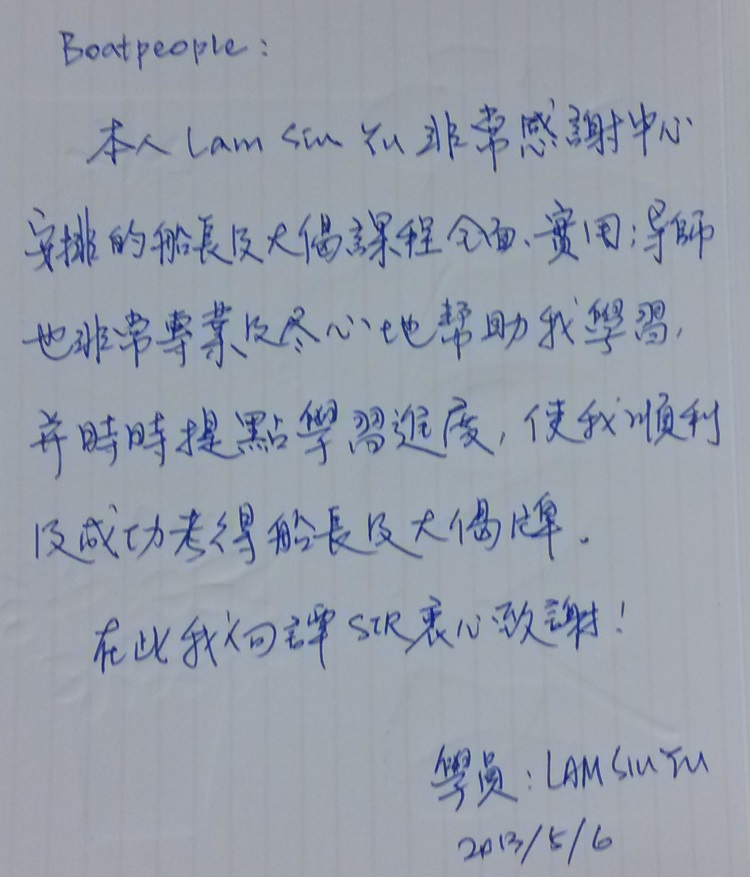 Boatpeople:
本人Lam Siu Yu非常感謝中心
安排的船長及大偈課程全面、實用;导師
也非常專業及尽心地幫助我學習,
并時時提點學習進度,使我順利
及成功考得船長及大偈牌.
在此我向譚SIR衷心致謝!
學員:LAM SIU YU
2013/5/6